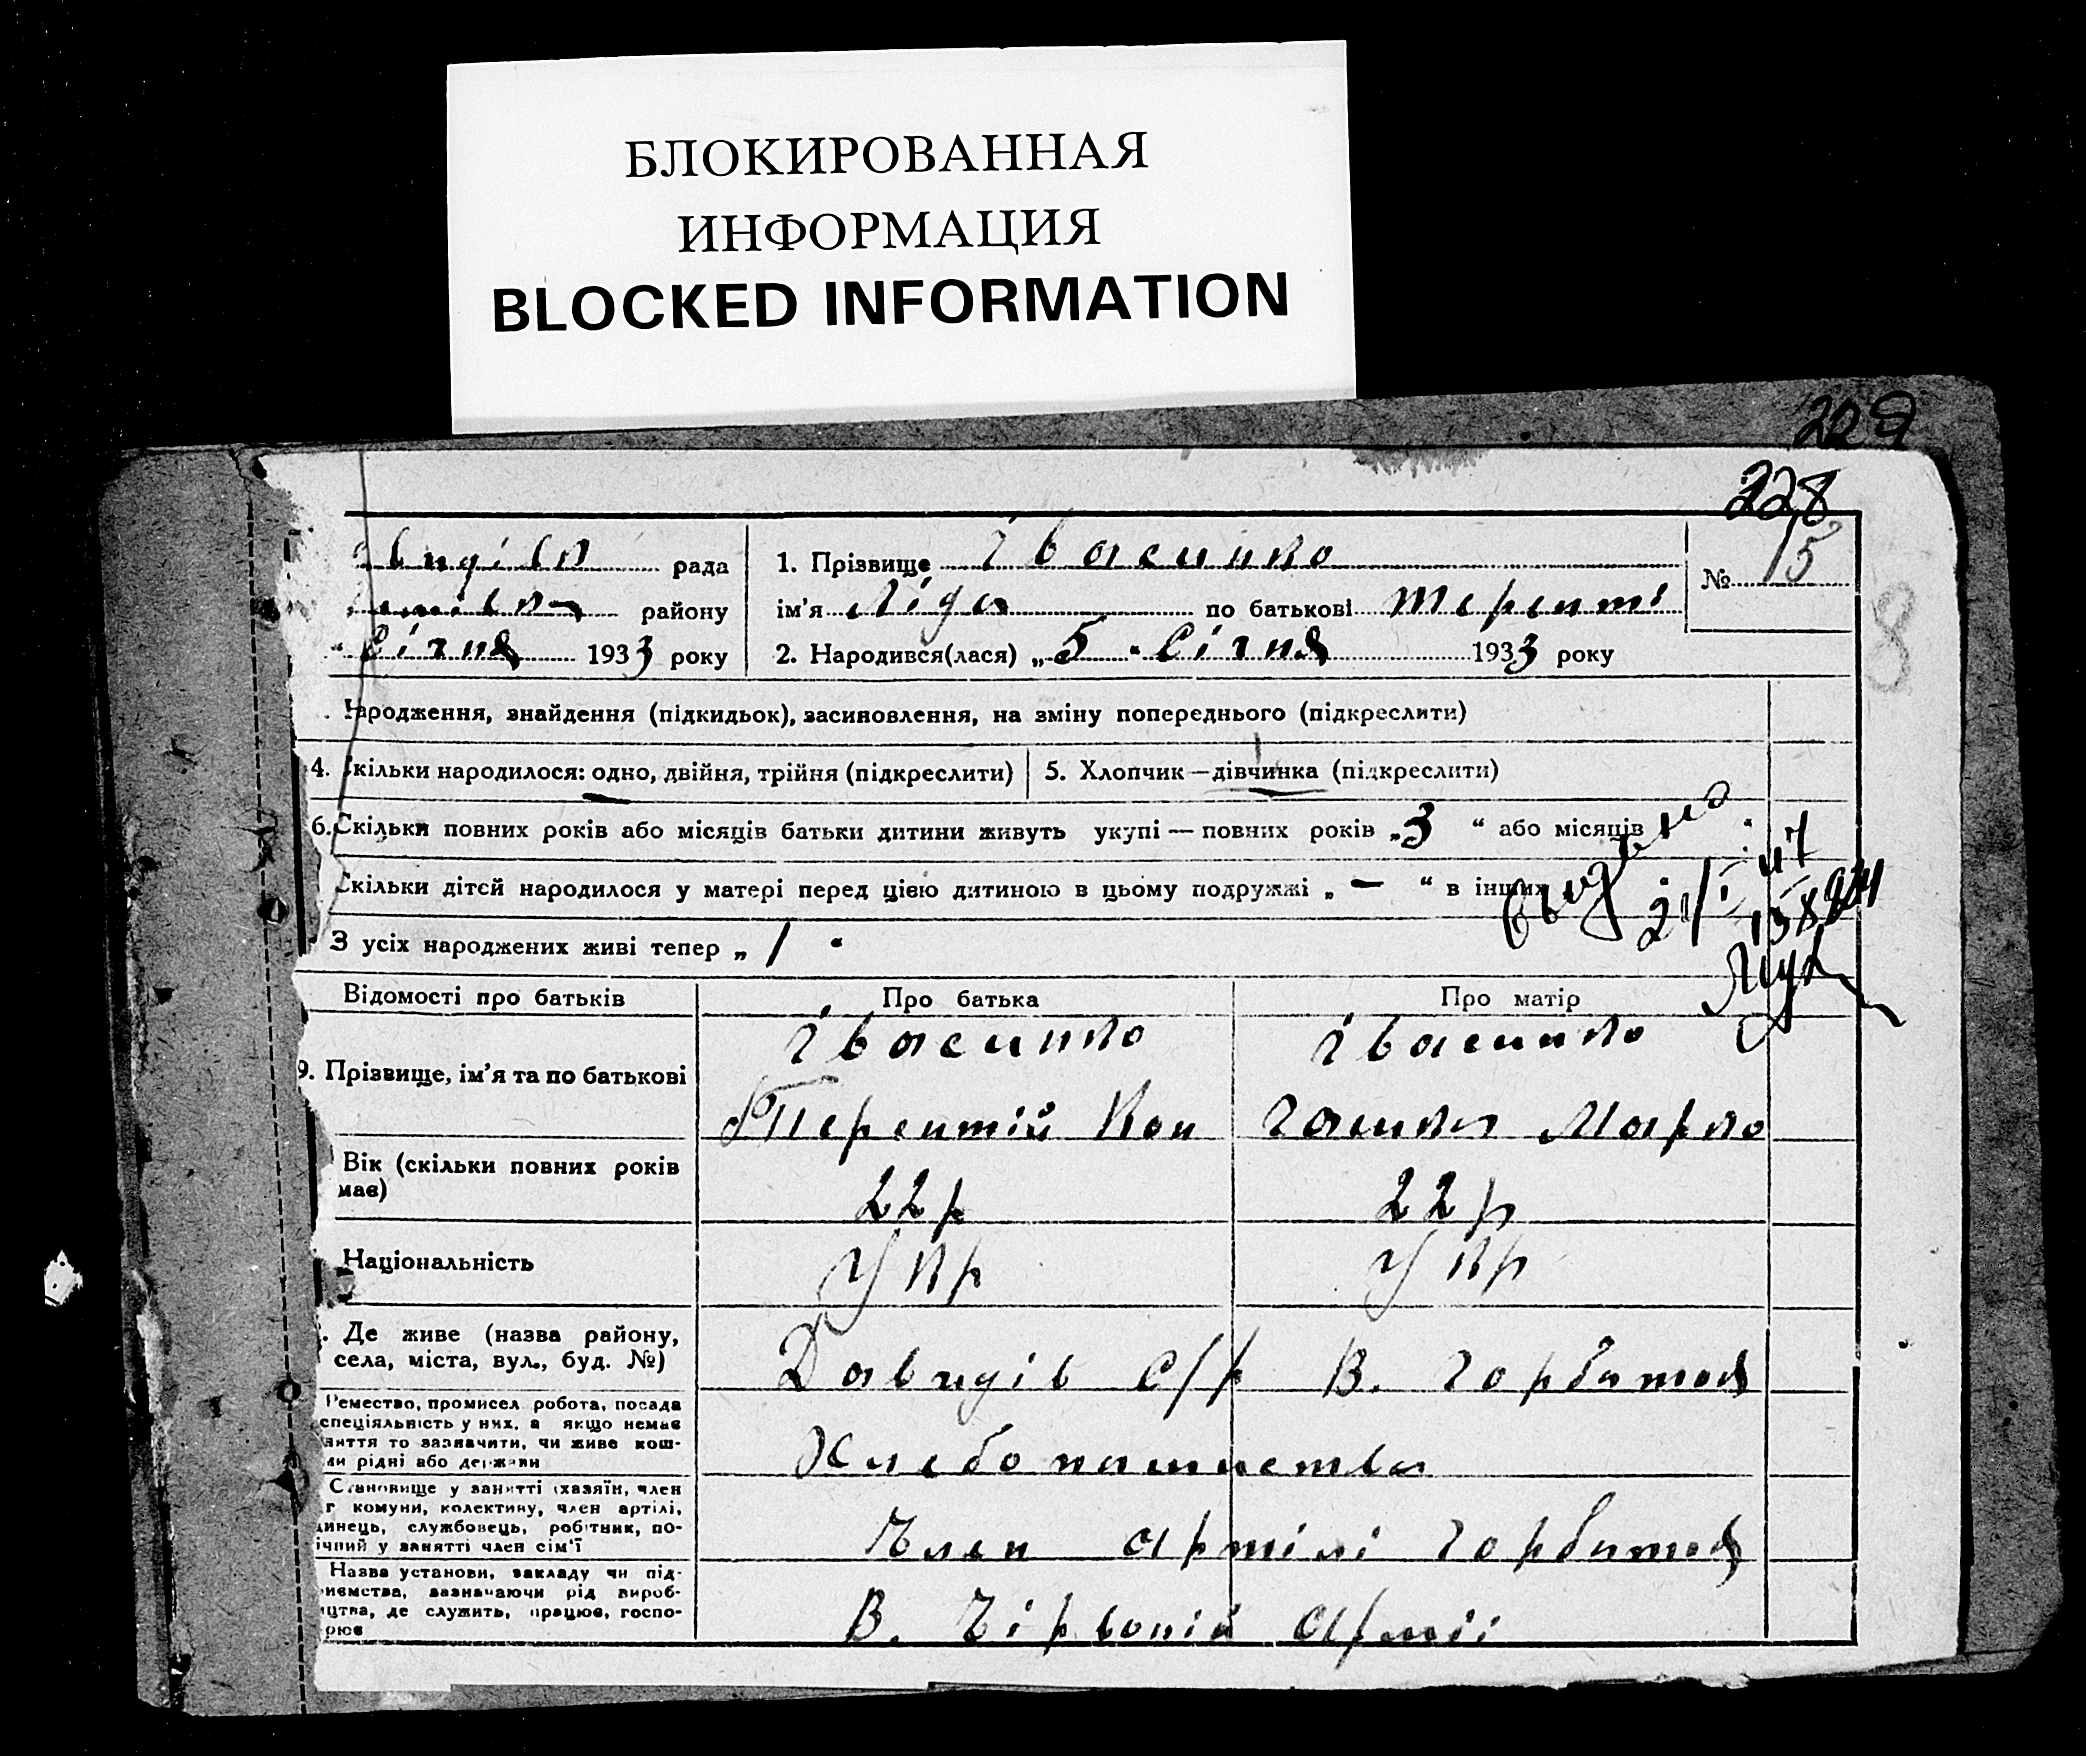 БЛОКИРОВАННАЯ
ИНФОРМАЦИЯ
BLOCKED INFORMATION
229
228
рада
1. Прізвище Івасенко
№ 15
району
ім'я Ліда по батькові Теренті
8
Січня 1933 року
2. Народився(лася) „5" Січня 1933 року
Народження, знайдення (підкидьок), засиновлення, на зміну попереднього (підкреслити)
4. Скільки народилося: одно, двійня, трійня (підкреслити)
5. Хлопчик — дівчинка (підкреслити)
6. Скільки повних років або місяців батьки дитини живуть укупі — повних років „3 " або місяців
Скільки дітей народилося у матері перед цією дитиною в цьому подружжі „ — " в інших
З усіх народжених живі тепер „ 1 "
Відомості про батьків
Про батька
Про матір
9. Прізвище, ім'я та по батькові
Івасенко
Терентій Кон
Івасенко
Гашка Марко
Вік (скільки повних років
має)
22 р
22 р
Національність
Укр
Укр
Де живе (назва району,
села, міста, вул., буд. №)
Давидів с/р В. Горбатая
Ремество, промисел робота, посада
спеціяльність у них, а якщо немає
няття то зазначити, чи живе кош-
ми рідні або держави
Хлебопашества
Становище у занятті (хазяїн, член
г комуни, колективу, член артілі,
динець, службовець, робітник, по-
ічний у занятті член сім'ї
Член артілі Горбатая
Назва установи, закладу чи під-
иємства, зазначаючи рід вироб-
ицтва, де служить, працює, госпо-
рює
В. Чірвоній Армії